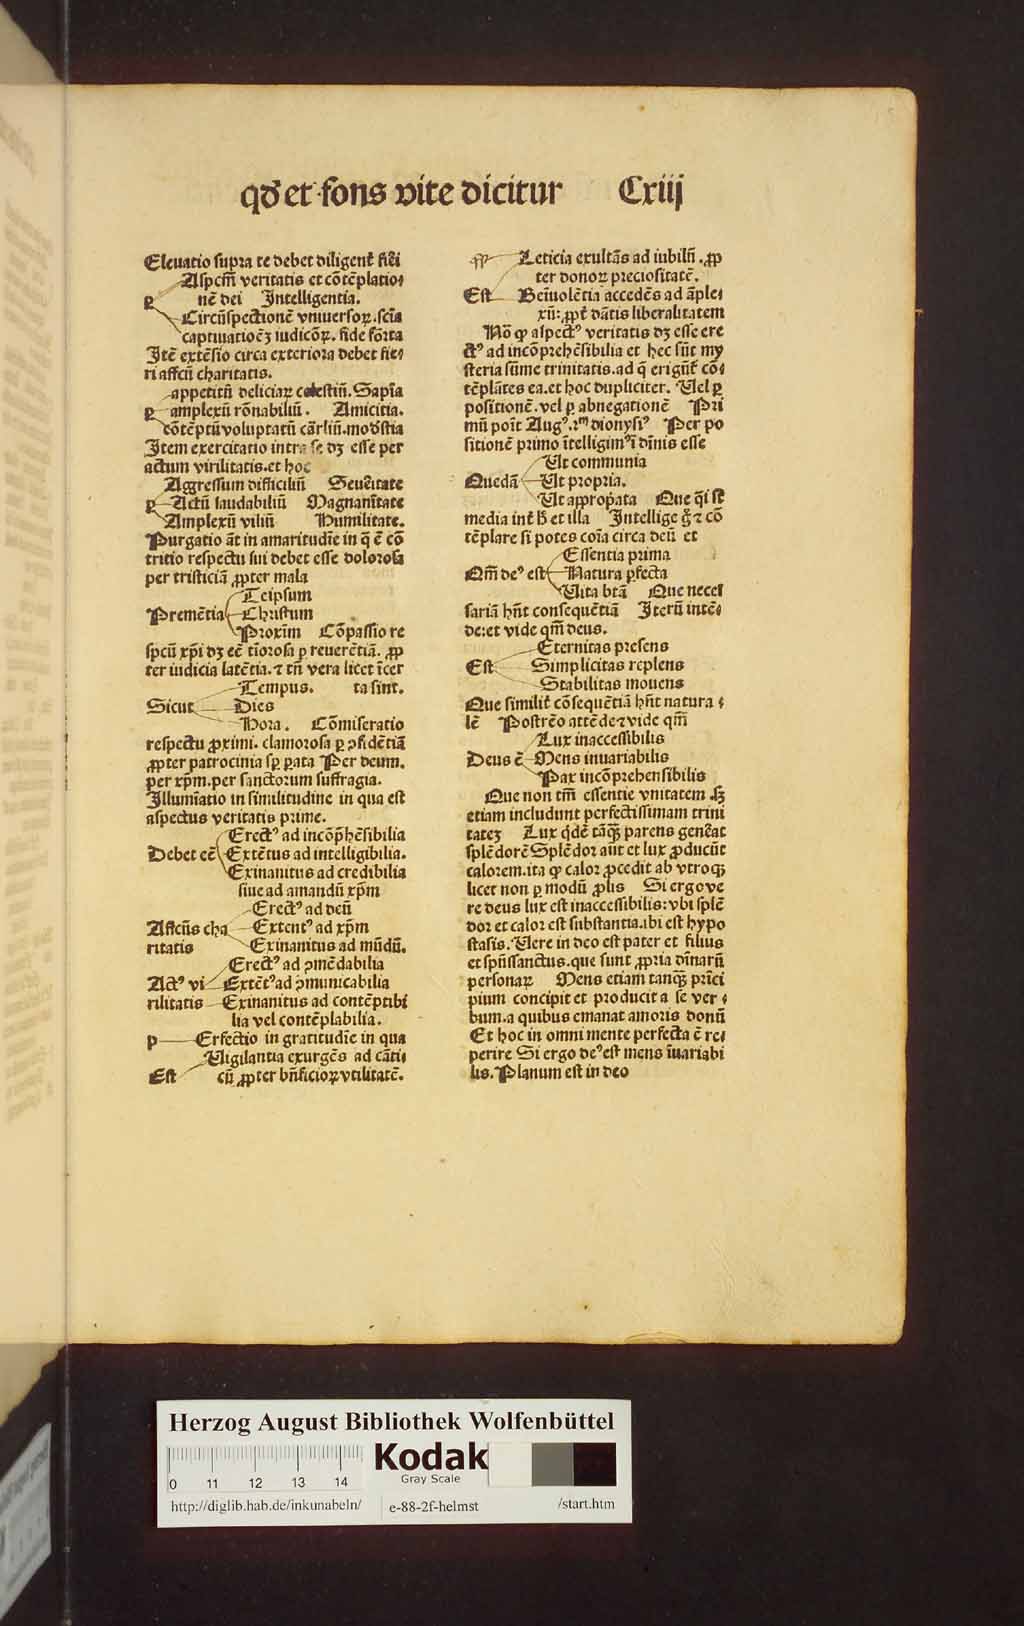 qđ et fons vite dicitur Cxiij
Eleuatio supra te debet diligent̃ fieri
Aspc̃m veritatis et cõtẽplatio⸗
ꝑ nẽ dei Intelligentia.
Circũspectionẽ vniuersoꝝ.scĩa
captiuatioẽꝫ iudicõꝝ. fide fõrta
Itẽ extẽsio circa exteriora debet fie⸗
ri affcũ charitatis.
appetitũ deliciaꝝ celestiũ. Sapĩa
ꝑ amplexũ rõnabiliũ. Amicitia.
cõtẽptũ voluptatũ cãrliũ.modẽstia
Item exercitatio intra se dꝫ esse per
actum virilitatis.et hoc
Aggressum difficiliũ Seuẽitate
ꝑ Actũ laudabiliũ Magnanĩtate
Amplexũ viliũ Humilitate.
Purgatio ãt in amaritudĩe in q̃ ẽ cõ
tritio respectu sui debet esse dolorosa
per tristiciã ꝓpter mala
Teipsum
Premẽtia Christum
Proxĩm Cõpassio re
spcũ xp̃i dꝫ eẽ tĩorosa ꝑ reuerẽtiã. ꝓp
ter iudicia latẽtia. ⁊ tñ vera licet ĩcer
Tempus. ta sint.
Sicut Dies
Hora. Cõmiseratio
respectu ꝓximi. clamorosa ꝑ ꝯfidẽtiã
ꝓpter patrocinia sp̃ ꝑata Per deum.
per xp̃m.per sanctorum suffragia.
Illumiatio in similitudine in qua est
aspectus veritatis prime.
Erectꝰ ad incõp̃hẽsibilia
Debet eẽ Extẽtus ad intelligibilia.
Exinanitus ad credibilia
siue ad amandũ xp̃m
Erectꝰ ad deũ
Affcũs cha Extentꝰ ad xp̃m
ritatis Exinanitus ad mũdũ.
Erectꝰ ad ꝯmẽdabilia
Actꝰ vi Extẽtꝰ ad ꝯmunicabilia
rilitatis Exinanitus ad contẽptibi
lia vel contẽplabilia.
p Erfectio in gratitudĩe in qua
Uigilantia exurgẽs ad cãti⸗
Est cũ ꝓpter bñficioꝝ vtilitatẽ.
Leticia exultãs ad iubilũ. ꝓp
ter donoꝝ preciositatẽ.
Est Beniuolẽtia accedẽs ad ãple⸗
xũ: ꝓpt̃ dãtis liberalitatem
Nõ ꝙ aspectꝰ veritatis dꝫ esse ere
ctꝰ ad incõprehẽsibilia et hec sũt my
steria sũme trinitatis.ad q̃ erigũt̃ cõ⸗
tẽplãtes ea.et hoc dupliciter. Uel ꝑ
positionẽ.vel ꝑ abnegationẽ Pri
mũ poĩt Augꝰ.2ᵐ dionysiꝰ Per po
sitionẽ primo ĩtelligimꝰ ĩ dĩnis esse
Ut communia
Quedã Ut propria.
Ut appropata Que q̃i st̃
media int̃ h̃ et illa Intellige g̃ ⁊ cõ
tẽplare si potes coĩa circa deũ et
Essentia prima
Qm̃ deꝰ est Natura ꝑfecta
Uita btã Que necef
sariã hñt consequẽtiã Iterũ intẽ⸗
de:et vide qm̃ deus.
Eternitas presens
Est Simplicitas replens
Stabilitas mouens
Que similit̃ cõsequẽtiã hñt natura⸗
lẽ Postrẽo attẽde ⁊ vide qm̃
Lux inaccessibilis
Deus ẽ Mens inuariabilis
Pax incõprehensibilis
Que non tm̃ essentie vnitatem sꝫ
etiam includunt perfectissimam trini
tateꝫ Lux q̃dẽ tãqꝫ parens genẽat
splẽdorẽ Splẽdor aũt et lux ꝓducũt
calorem.ita ꝙ calor ꝓcedit ab vtroqꝫ
licet non ꝑ modũ ꝓlis Si ergo ve
re deus lux est inaccessibilis: vbi splẽ
dor et calor est substantia.ibi est hypo
stasis. Uere in deo est pater et filius
et spũssanctus.que sunt ꝓpria dĩnarũ
personaꝝ Mens etiam tanqꝫ prĩci
pium concipit et producit a se ver⸗
bum.a quibus emanat amoris donũ
Et hoc in omni mente perfecta ẽ re⸗
perire Si ergo deꝰ est mens ĩuariabi
lis. Planum est in deo
Herzog August Bibliothek Wolfenbüttel
0 11 12 13 14
Kodak
Gray Scale
http://diglib.hab.de/inkunabeln/ e-88-2f-helmst /start.htm